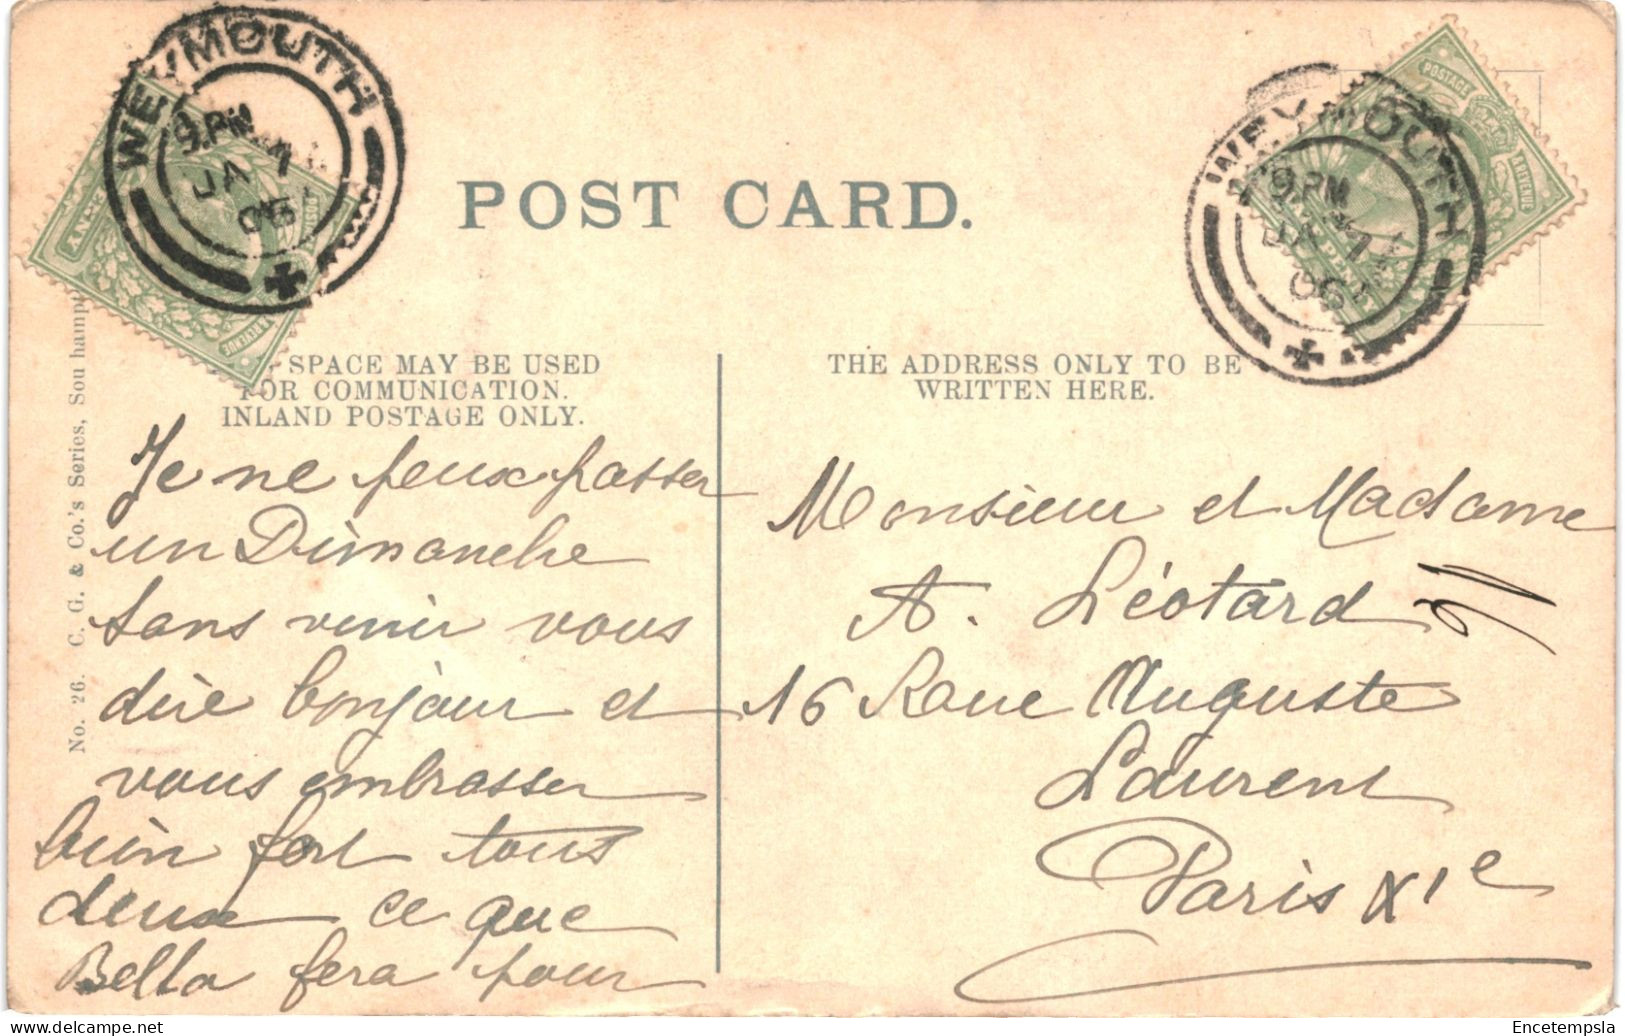 WEYMOUTH
9.PM
JA 1
06
WEYMOUTH
9.PM
JA 1
06
POSTAGE
REVENUE
POST CARD.
SPACE MAY BE USED
FOR COMMUNICATION.
INLAND POSTAGE ONLY.
THE ADDRESS ONLY TO BE
WRITTEN HERE.
No. 26. C. G. & Co.'s Series, Southamp
Je ne peux passer
un Dimanche
sans venir vous
dire bonjour et
vous embrasser
bien fort tous
deux ce que
Bella fera pour
Monsieur et Madame
A. Léotard
16 Rue Auguste
Laurent
Paris XIe
Encetempsla